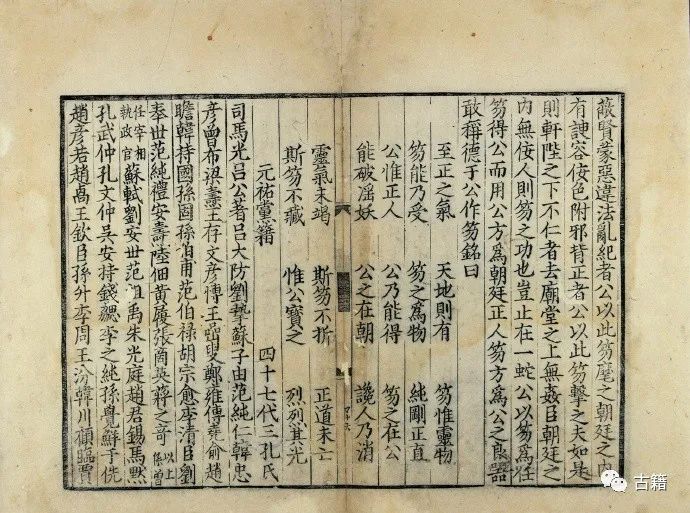 蔽賢蒙惡違法亂紀者公以此笏麾之朝廷之内
有諛容佞色附邪背正者公以此笏擊之夫如是
則軒陛之下不仁者去廟堂之上無姦臣朝廷之
内無佞人則笏之功也豈止在一蛇公以笏爲任
笏得公而用公方爲朝廷正人笏方爲公之良器
敢稱德于公作笏銘曰
至正之氣 天地則有 笏惟靈物
笏能乃受 笏之爲物 純剛正直
公惟正人 公乃能得 笏之在公
能破滛妖 公之在朝 讒人乃消
靈氣未竭 斯笏不折 正道未亡
斯笏不藏 惟公寶之 烈烈其光
元祐黨籍 四十七代三孔氏
司馬光吕公著吕大防劉摯蘇子由范純仁韓忠
彦曾布梁燾王存文彦博王巖叟鄭雍傅堯俞趙
瞻韓持國孫固孫伯甫范伯禄胡宗愈李清臣劉
奉世范純禮安燾陸佃黄履張商英蔣之竒 以上係曾
任宰相執政官 蘇軾劉安世范祖禹朱光庭趙君錫馬黙
孔武仲孔文仲吴安持錢勰李之純孫覺鮮于侁
趙彦若趙卨王欽臣孫升李周王汾韓川顧臨賈
古籍